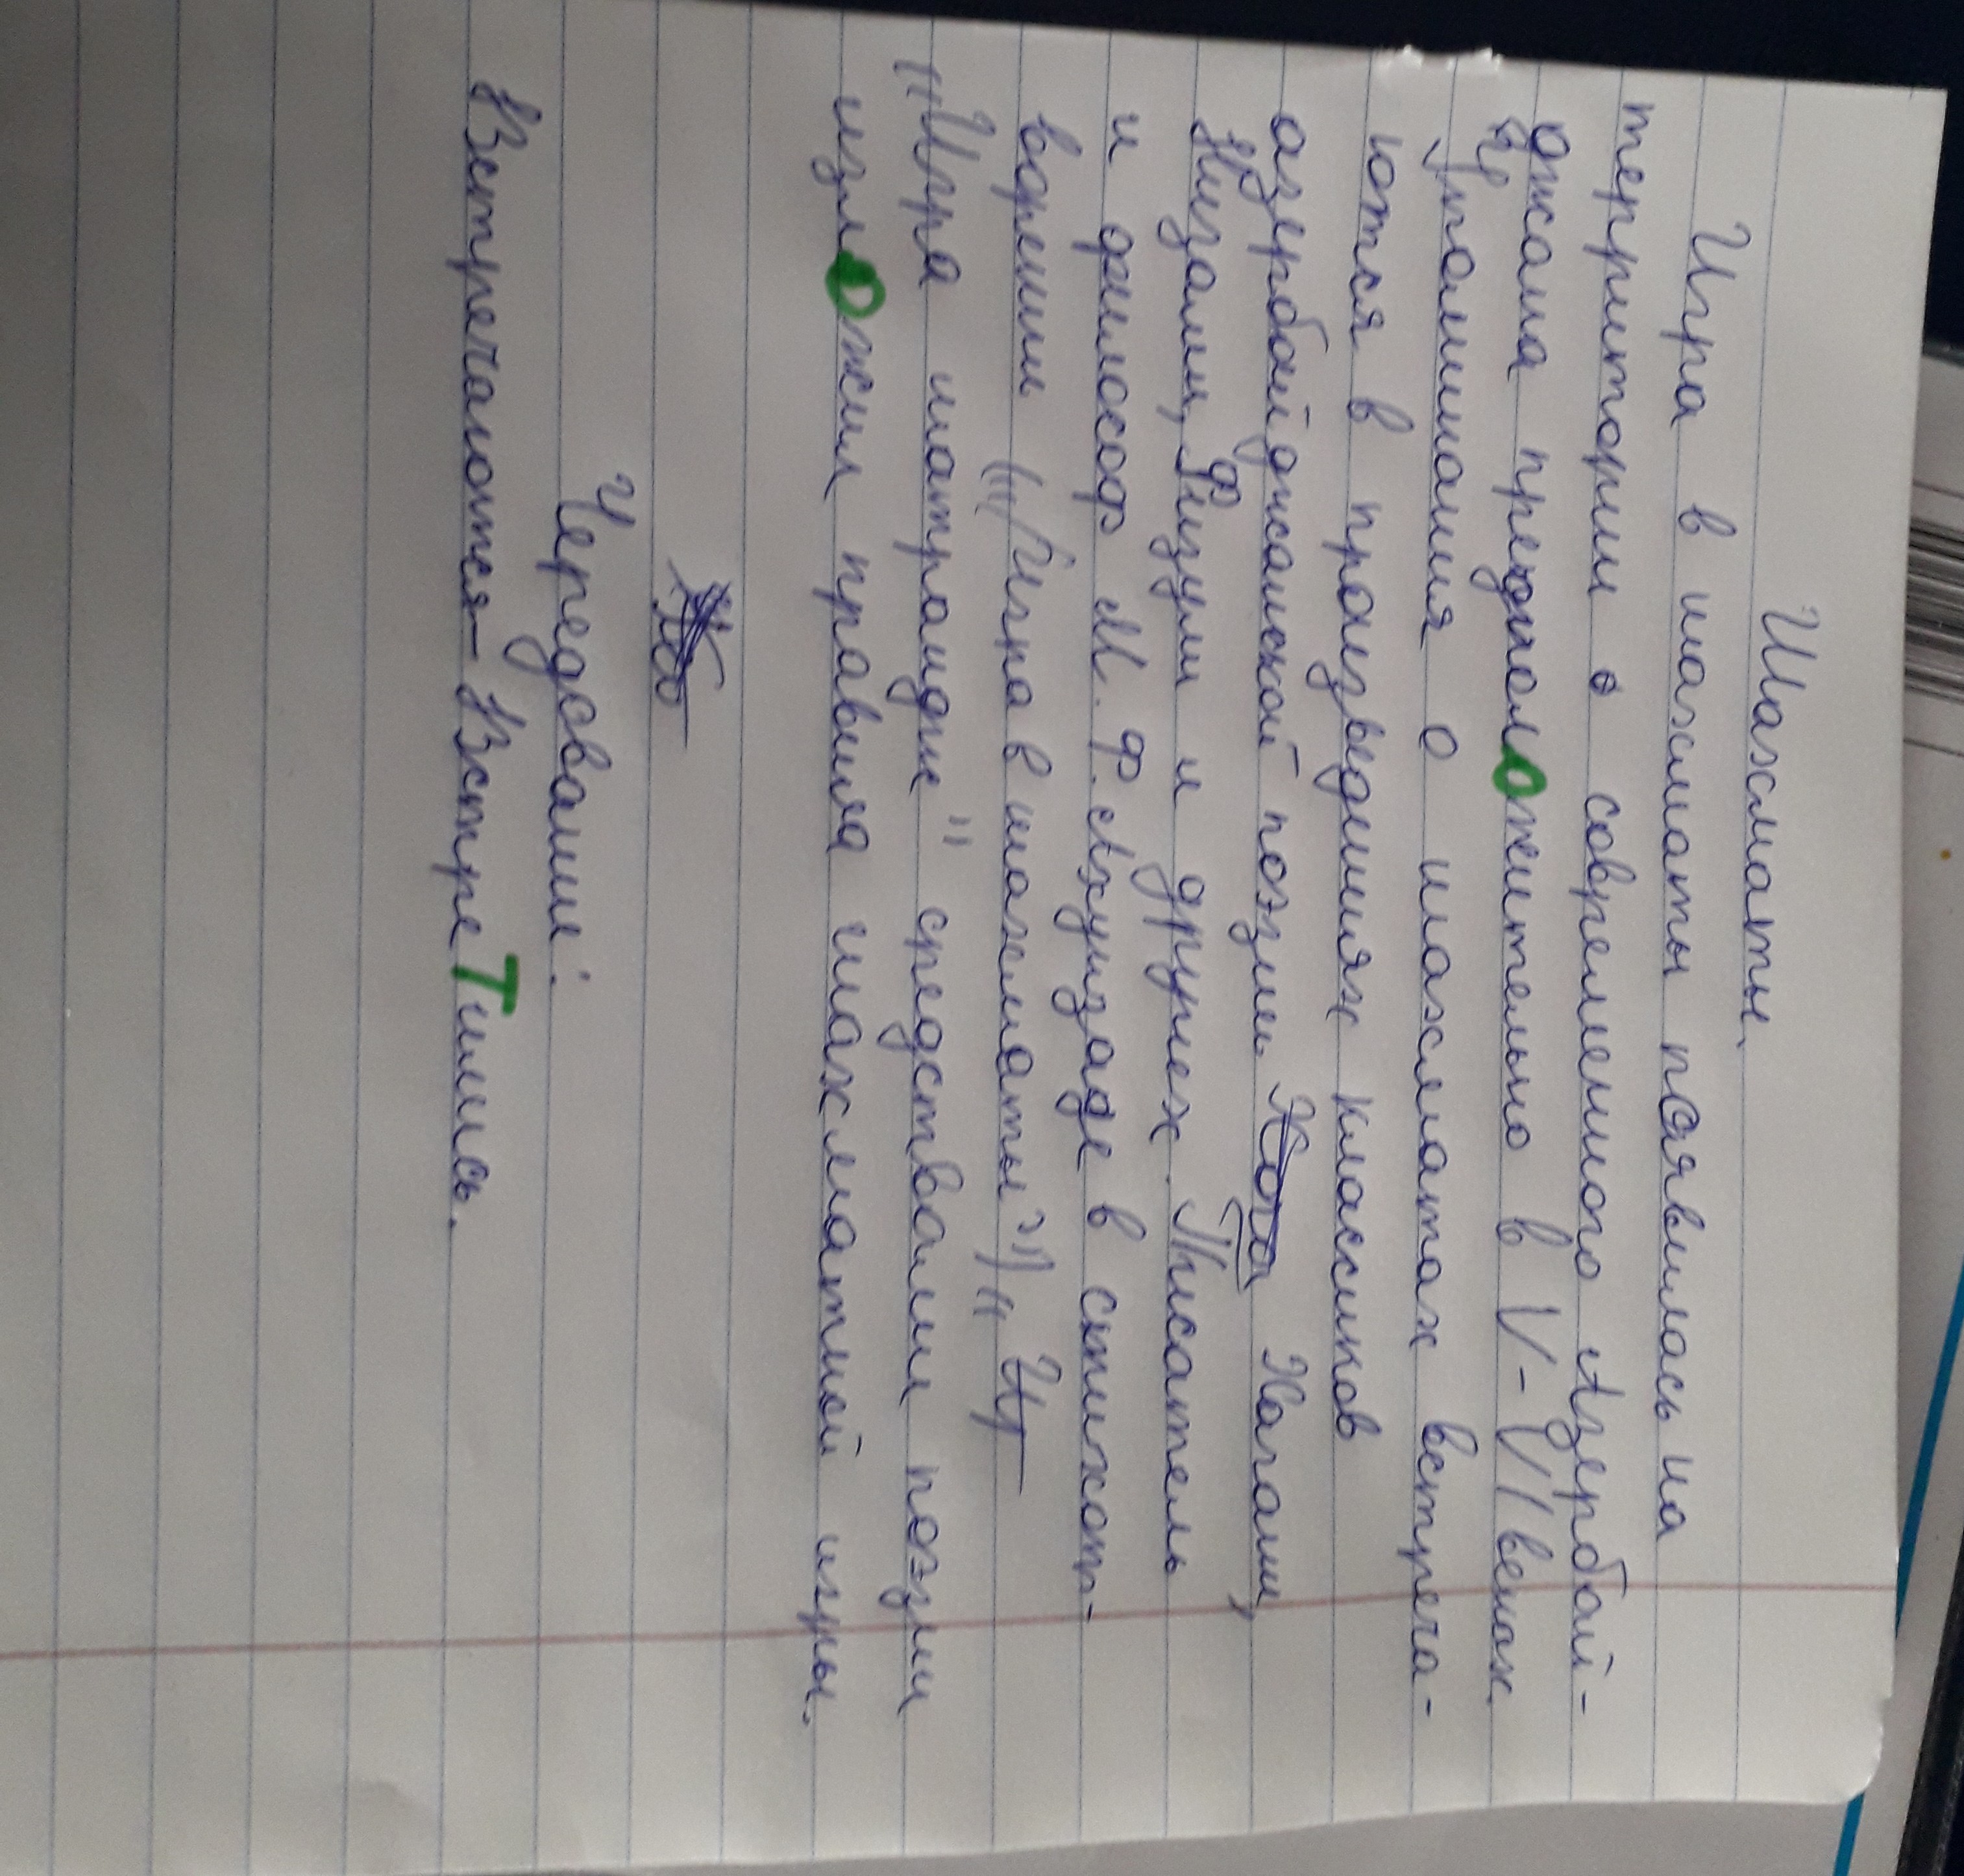 Шахматы.
Игра в шахматы появилась на
территории современного Азербай-
джана предположительно в V-VII веках
Упоминания о шахматах встреча-
ются в произведениях классиков
азербайджанской поэзии Хагани,
Низами, Физули и других. Писатель
и философ М. Ф. Ахундзаде в стихот-
ворении "(Игра в шахматы")"
"Игра шатрандж" средствами поэзии
изложил правила шахматной игры.
Чередование:
Встречаются - ВстреТились.